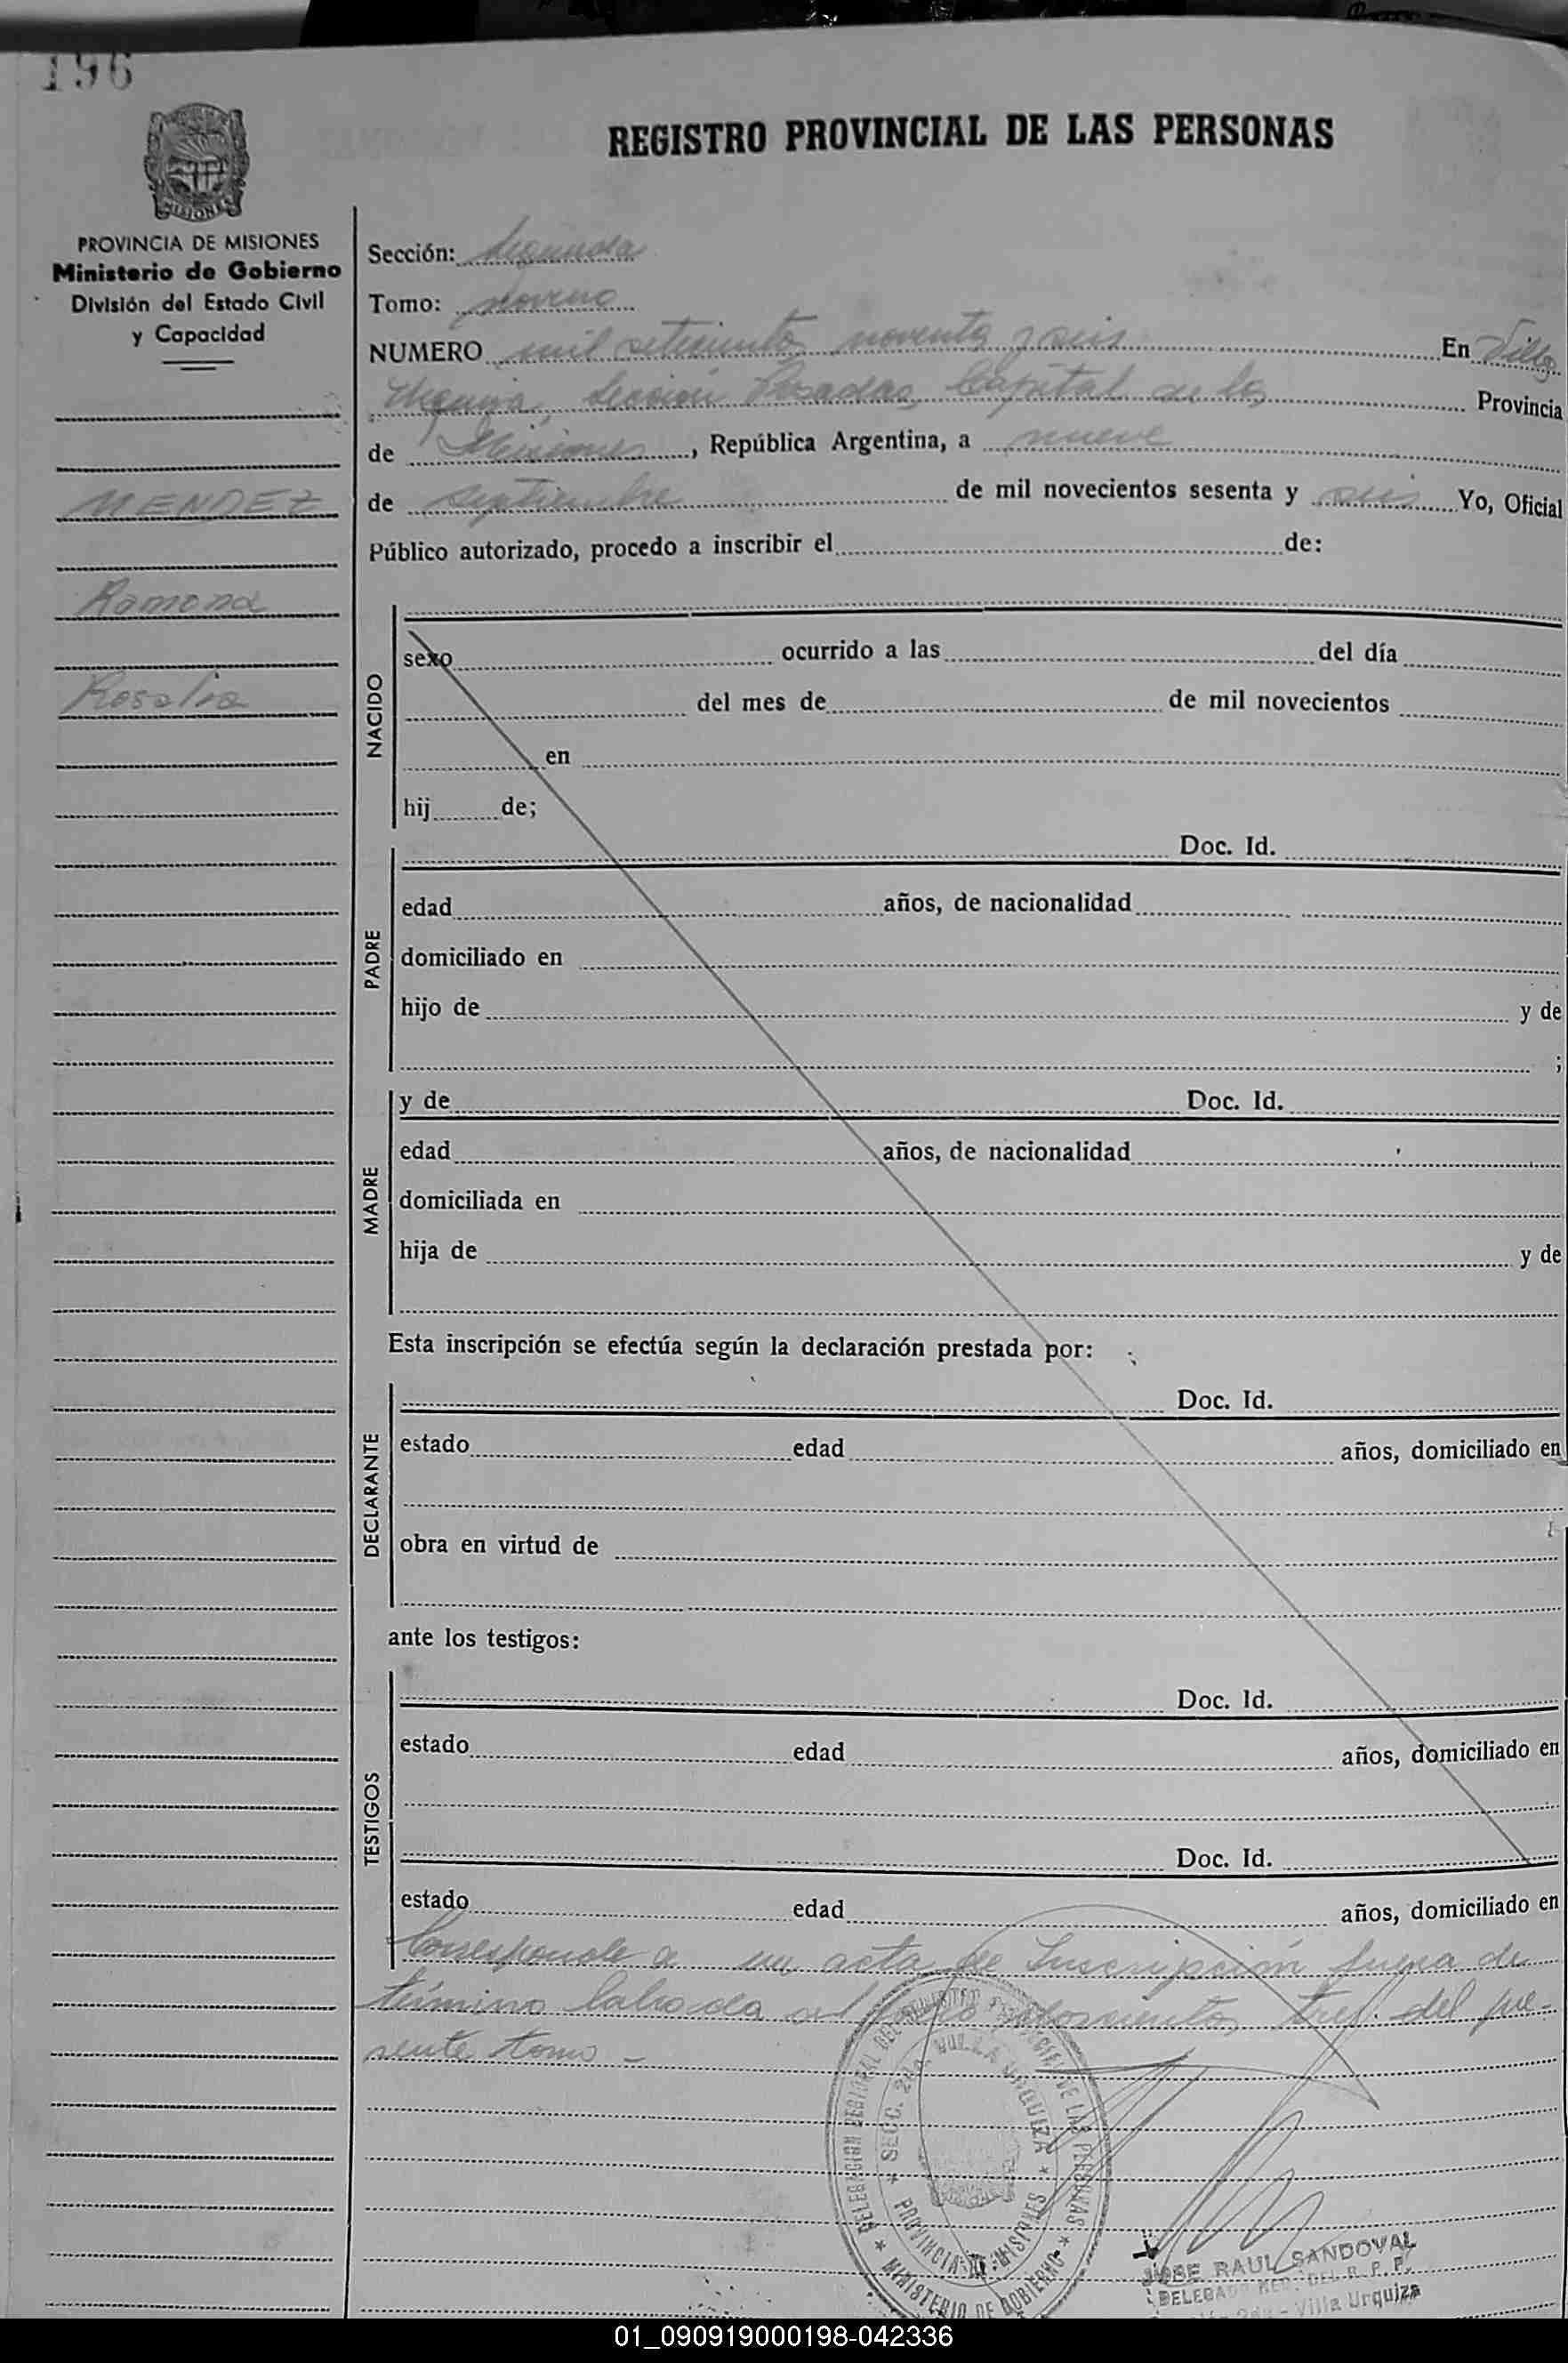 196
REGISTRO PROVINCIAL DE LAS PERSONAS
MISIONES
PROVINCIA DE MISIONES
Ministerio de Gobierno
División del Estado Civil
y Capacidad
MENDEZ
Ramona
Rosalia
Sección: Segunda
Tomo: noveno
NUMERO mil setecientos noventa y seis En Villa
Urquiza, Sección Posadas, Capital de la Provincia
de Misiones, República Argentina, a nueve
de septiembre de mil novecientos sesenta y seis Yo, Oficial
Público autorizado, procedo a inscribir el de:
NACIDO
sexo ocurrido a las del día
del mes de de mil novecientos
en
hij de;
PADRE
Doc. Id.
edad años, de nacionalidad
domiciliado en
hijo de y de
;
MADRE
y de Doc. Id.
edad años, de nacionalidad
domiciliada en
hija de y de
Esta inscripción se efectúa según la declaración prestada por:
DECLARANTE
Doc. Id.
estado edad años, domiciliado en
obra en virtud de
ante los testigos:
TESTIGOS
Doc. Id.
estado edad años, domiciliado en
Doc. Id.
estado edad años, domiciliado en
Corresponde a un acta de Inscripción fuera de
término labrada al folio doscientos tres del pre-
sente tomo -
DELEGACION REGIONAL DEL REGISTRO PROVINCIAL DE LAS PERSONAS
* MINISTERIO DE GOBIERNO *
* SECC. 2da. VILLA URQUIZA *
PROVINCIA DE MISIONES
JOSE RAUL SANDOVAL
DELEGADO REG. DEL R. P. P.
2da - Villa Urquiza
01_090919000198-042336